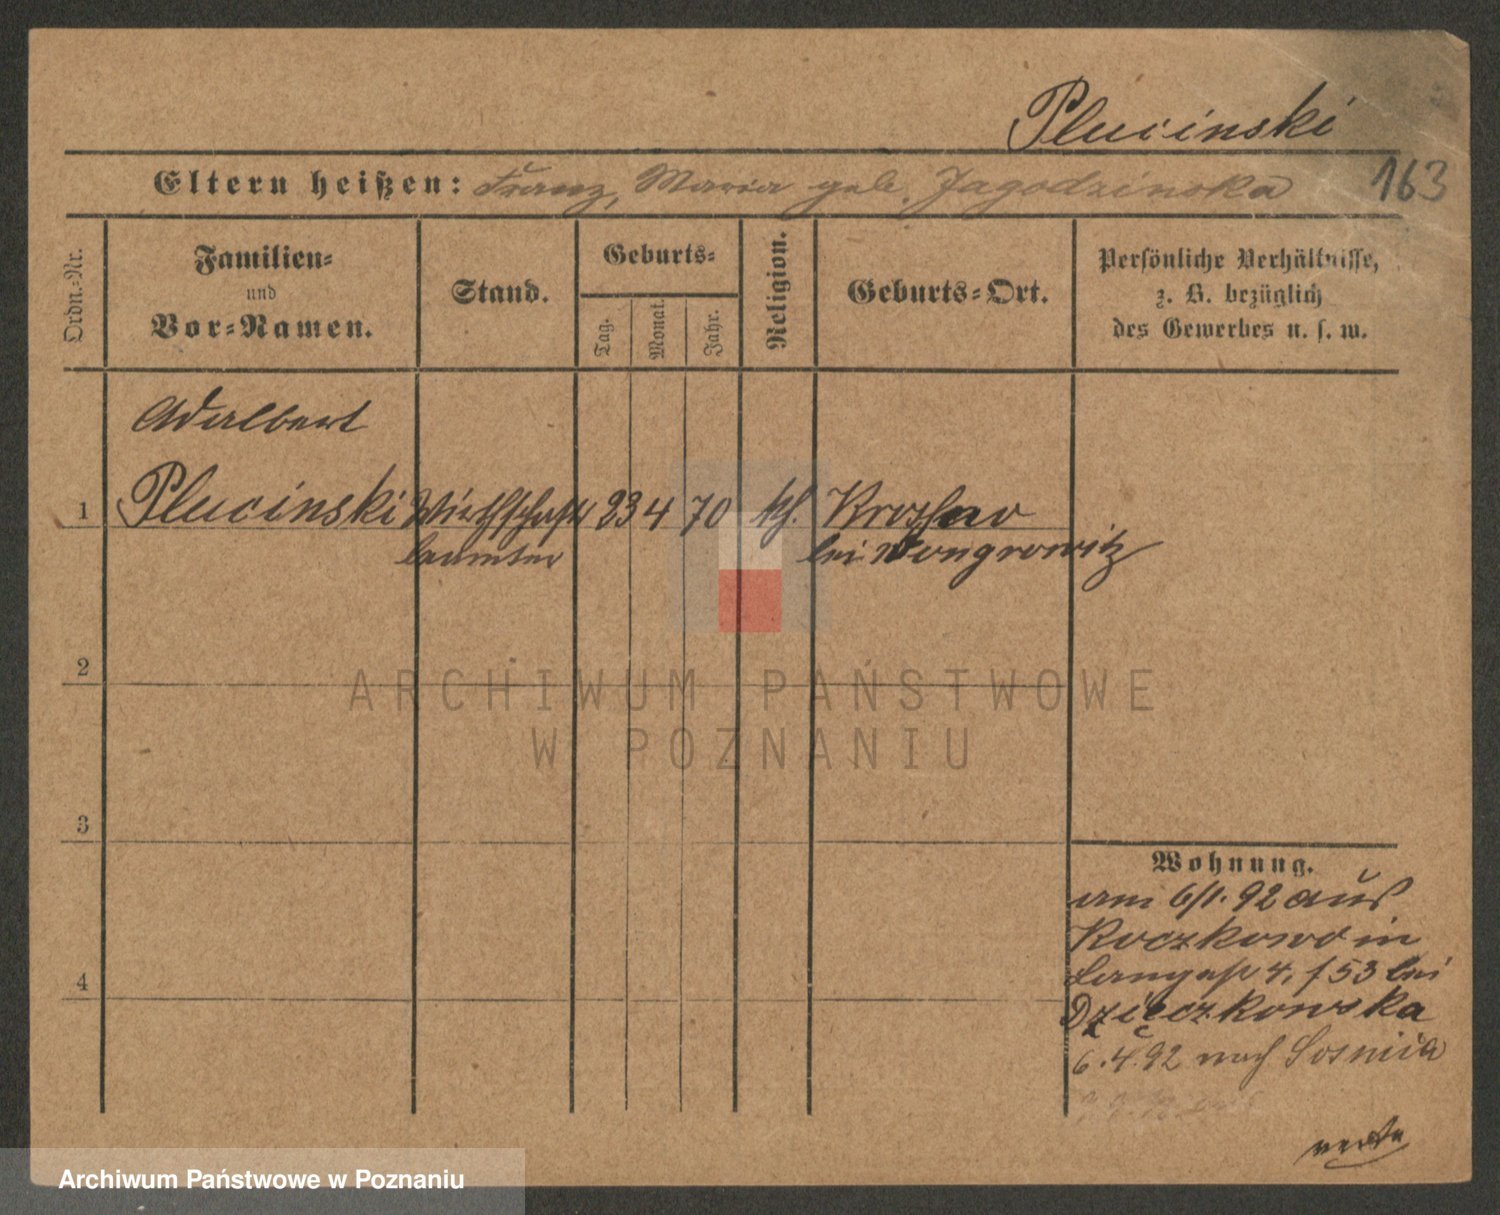 Plucinski
163
Eltern heißen: Franz, Maria geb. Jagodzinska
Ordn.-Nr.
Familien-
und
Vor-Namen.
Stand.
Geburts-
Tag.
Monat.
Jahr.
Religion.
Geburts-Ort.
Persönliche Verhältnisse,
z. B. bezüglich
des Gewerbes u. s. w.
Adalbert
1 Plucinski Wirthschafts 23 4 70 kth. Kroschno
beamter bei Wongrowitz
2
3
4
Wohnung.
am 6/1. 92 aus
Koczkowo in
Langestr 4, f 53 bei
Dzięczkowska
6.4.92 nach Sosnica
verte
ARCHIWUM PAŃSTWOWE
W POZNANIU
Archiwum Państwowe w Poznaniu